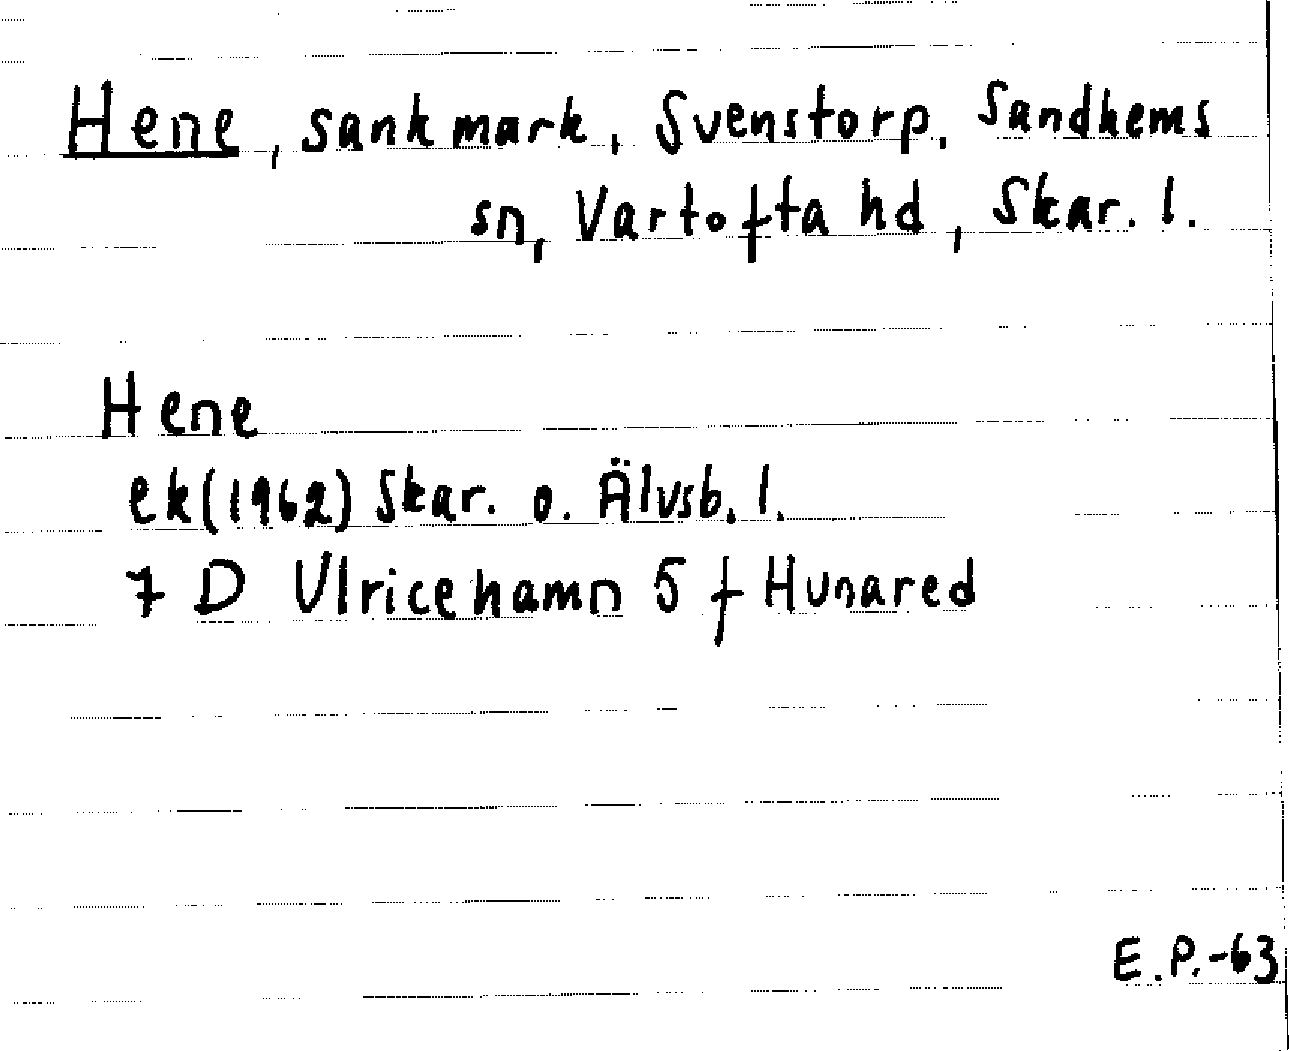 Hene, sankmark, Svenstorp, Sandhems
sn, Vartofta hd, Skar. l.
Hene
ek(1962) Skar. o. Älvsb. l.
7 D Ulricehamn 5 f Hunared
E.P.-63